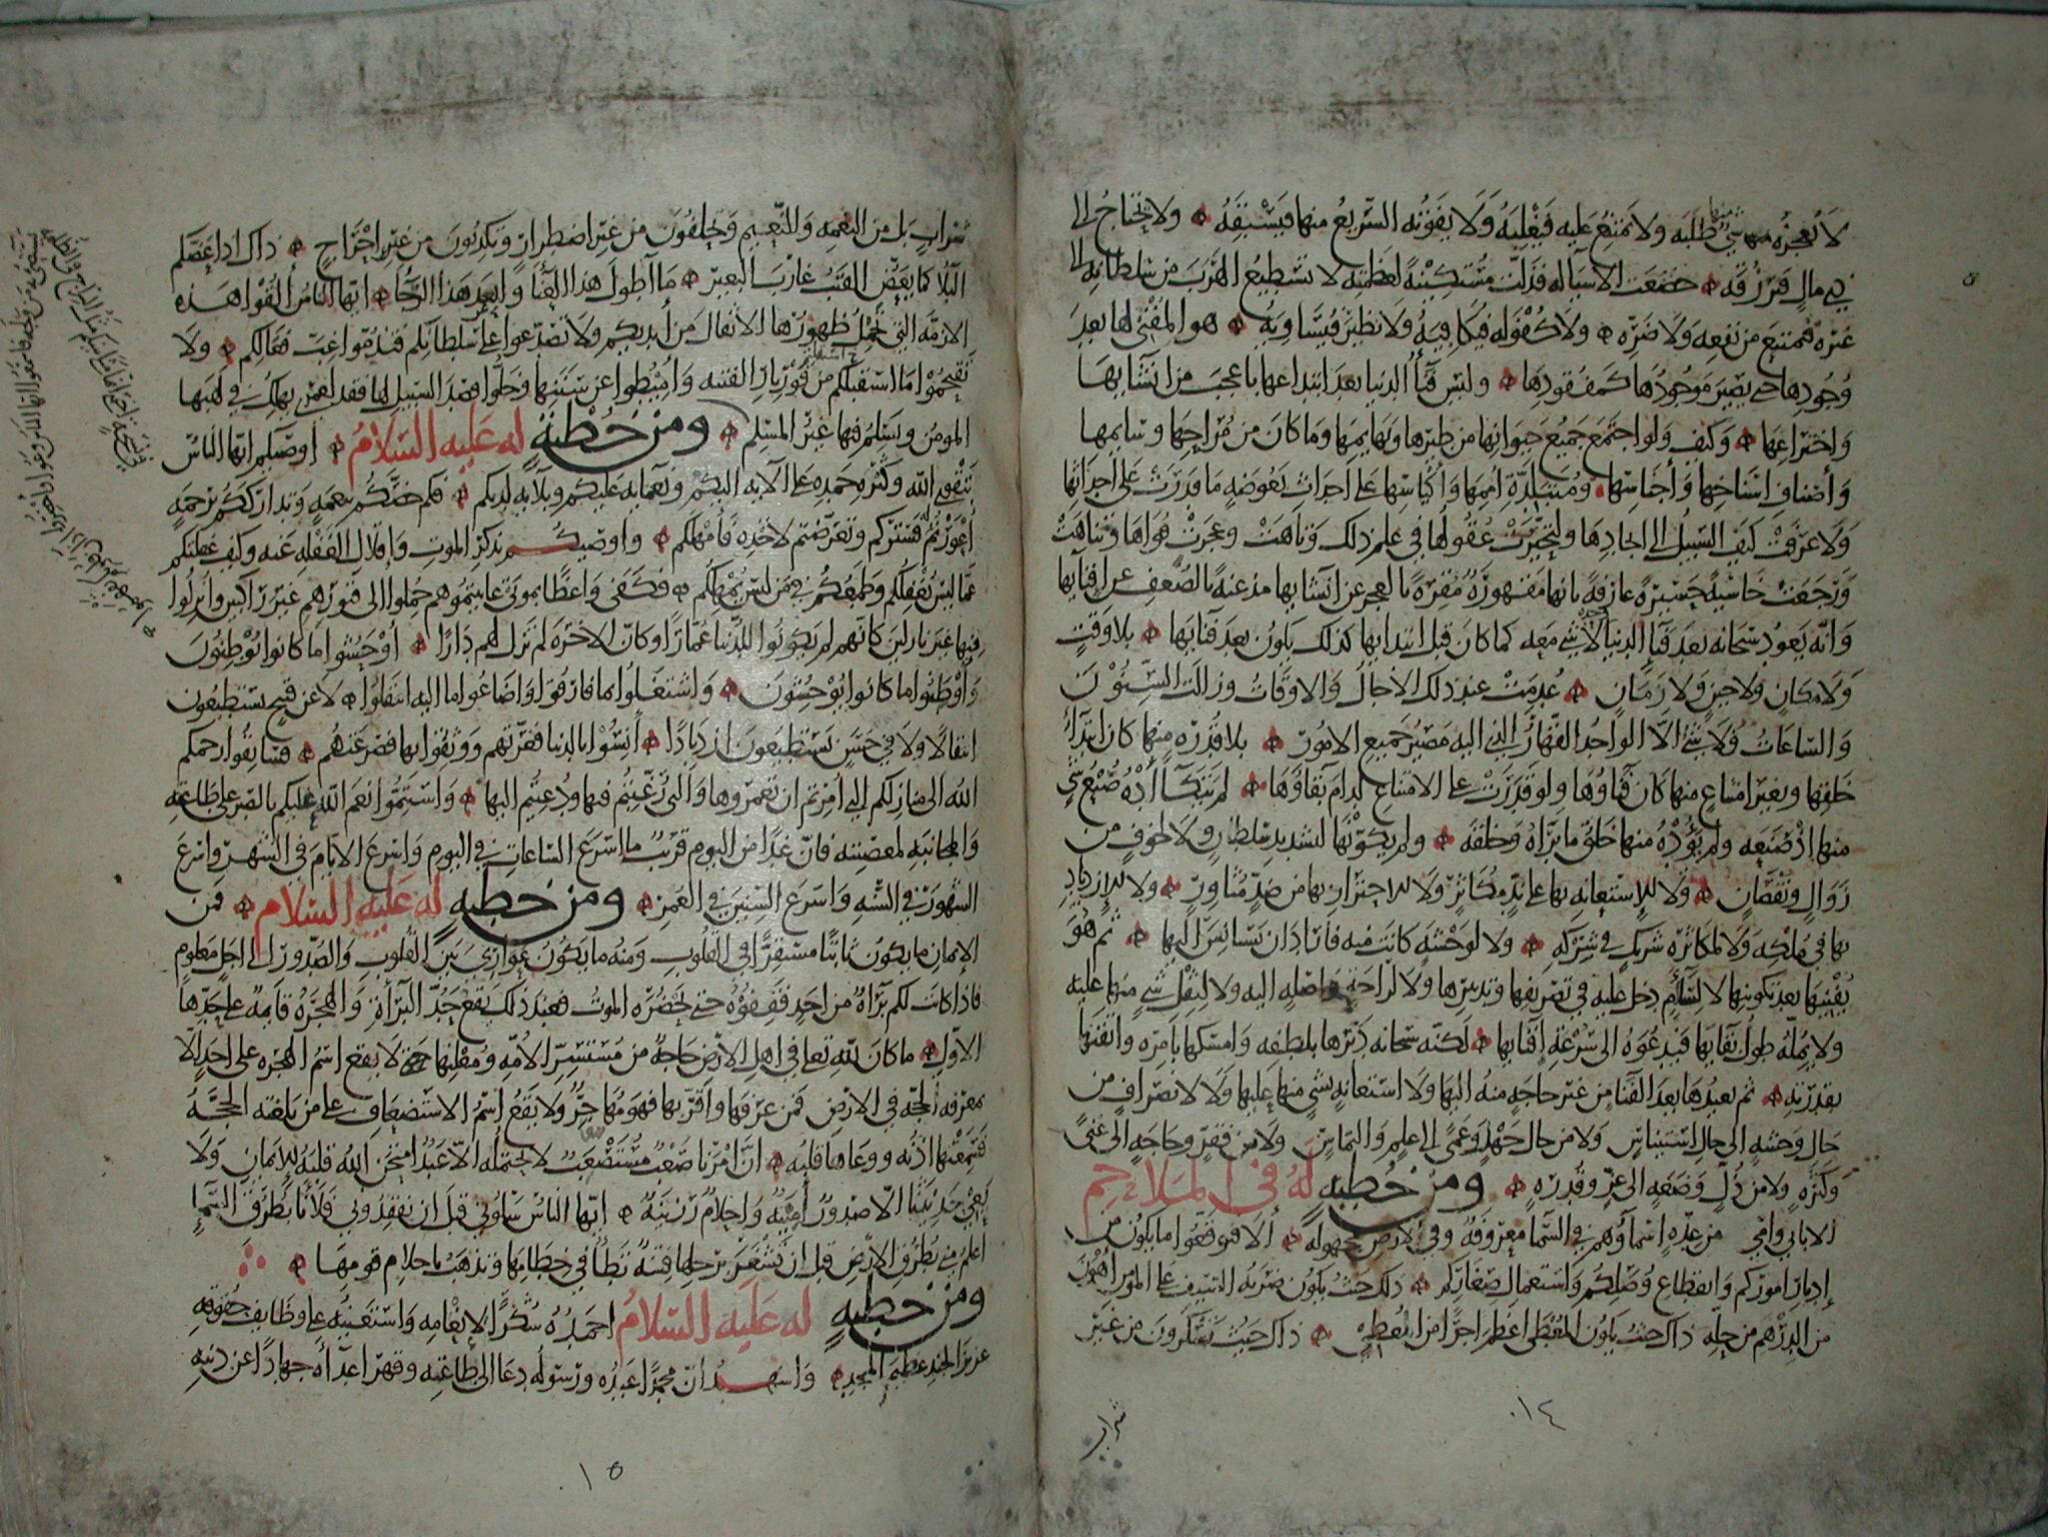 لا يعجزه منها شي طلبه ولا يمتنع عليه فيغلبه ولا يفوته السريع منها فيسبقه ولا يحتاج الى
ذي مال فيرزقه خضعت الاشيآ له فذلت مستكينة لعظمته لا تستطيع الهرب من سلطانه الى
غيره فتمتنع من نفعه ولا ضره ولا كفؤ له فيكافيه ولا نظير فيساويه هو المفنى لها بعد
وجودها حتى يصير موجودها كمفقودها وليس فنآ الدنيا بعد ابتداعها باعجب من انشايها
واختراعها وكيف ولو اجتمع جميع حيوانها من طيرها وبهايمها وما كان من مراحها وسايمها
واصناف اسناخها واجناسها ومتبلدة اممها واكياسها على احداث بعوضة ما قدرت على احداثها
ولا عرفت كيف السبيل الى ايجادها ولتحيرت عقولها في علم ذلك وتاهت وعجزت قواها وتناهت
ورجعت خاسئة حسيرة عارفة بانها مقهورة مقرة بالعجز عن انشايها مذعنة بالضعف عن افنايها
وانه يعود سبحانه بعد فنآ الدنيا وحده لا شي معه كما كان قبل ابتدايها كذلك يكون بعد فنايها بلا وقت
ولا مكان ولا حين ولا زمان عدمت عند ذلك الآجال والاوقات وزالت السنون
والساعات فلا شئ الا الواحد القهار الذي اليه مصير جميع الامور بلا قدرة منها كان ابتدآء
خلقها وبغير امتناع منها كان فناوها ولو قدرت على الامتناع لدام بقاوها لم يتكآأده صنع شي
منها اذ صنعه ولم يؤده منها خلق ما برأه وخلقه ولم يكونها لتشديد سلطان ولا لخوف من
زوال ونقصان ولا للاستعانة بها على ند مكاثر ولا للاحتراز بها من ضد مثاور ولا للازدياد
بها في ملكه ولا لمكاثرة شريك في شركه ولا لوحشة كانت منه فاراد ان يستانس اليها ثم هو
يفنيها بعد تكوينها لا لسأم دخل عليه في تصريفها وتدبيرها ولا لراحة واصلة اليه ولا لثقل شي منها عليه
ولا يمله طول بقايها فيدعوه الى سرعة افنايها لكنه سبحانه دبرها بلطفه وامسكها بامره واتقنها
بقدرته ثم يعيدها بعد الفنا من غير حاجة منه اليها ولا استعانة بشي منها عليها ولا لانصراف من
حال وحشة الى حال استيناس ولا من حال جهل وعمى الى علم والتماس ولا من فقر وحاجة الى غنى
وكثرة ولا من ذل وضعة الى عز وقدرة ومن خطبة له في الملاحم
الا بابي وامي من عدة اسماؤهم في السما معروفة وفي الارض مجهولة ألا فتوقعوا ما يكون من
إدبار اموركم وانقطاع وصلكم واستعمال صغاركم ذلك حيث يكون ضربة السيف على المومن اهون
من الدرهم من حله ذاك حيث يكون المعطى اعظم اجرا من المعطي ذاك حيث تسكرون من غير
شراب
١٤
شراب بل من النعمة والنعيم وتحلفون من غير اضطرار وتكذبون من غير احراج ذاك اذا عضكم
البلا كما يعض القتب غارب البعير ما أطول هذا العنآ وابعد هذا الرجآ ايها الناس القوا هذه
الازمة التي تحمل ظهورها الاثقال من أيديكم ولا تصدعوا على سلطانكم فتذموا غب فعالكم ولا
تقتحموا ما استقبلكم من فور نار الفتنة واميطوا عن سننها وخلوا قصد السبيل لها فقد لعمري يهلك في لهبها
المومن ويسلم فيها غير المسلم ومن خطبة له عليه السلام أوصيكم ايها الناس
بتقوى الله وكثرة حمده على آلائه اليكم ونعمائه عليكم وبلآئه لديكم فكم خصكم بنعمة وتدارككم برحمة
أعورتم له فستركم وتعرضتم لاخذه فأمهلكم واوصيكم بذكر الموت وإقلال الغفلة عنه وكيف غفلتكم
عما ليس يغفلكم وطمعكم في من ليس يمهلكم فكفى واعظا بموتى عاينتموهم حملوا الى قبورهم غير راكبين وأنزلوا
فيها غير نازلين كانهم لم يكونوا للدنيا عمارا وكان الآخرة لم تزل لهم دارا أوحشوا ما كانوا يوطنون
وأوطنوا ما كانوا يوحشون واشتغلوا بما فارقوا واضاعوا ما اليه انتقلوا لا عن قبيح يستطيعون
انتقالا ولا في حسن يستطيعون ازديادا أنسوا بالدنيا فغرتهم ووثقوا بها فصرعتهم فسابقوا رحمكم
الله الى منازلكم التي امرتم ان تعمروها والتي رغبتم فيها ودعيتم اليها واستتموا نعم الله عليكم بالصبر على طاعته
والمجانبة لمعصيته فان غدا من اليوم قريب ما اسرع الساعات في اليوم واسرع الايام في الشهر واسرع
الشهور في السنة واسرع السنين في العمر ومن خطبة له عليه السلام فمن
الإيمان ما يكون ثابتا مستقرا في القلوب ومنه ما يكون عواري بين القلوب والصدور الى اجل معلوم
فاذا كانت لكم براءة من احد فقفوه حتى يحضره الموت فعند ذلك يقع حد البرآءة والهجرة قايمة على حدها
الاول ما كان لله تعا في اهل الارض حاجة من مستسر الامة ومعلنها لا يقع اسم الهجرة على احد الا
بمعرفة الحجة في الارض فمن عرفها واقر بها فهو مهاجر ولا يقع اسم الاستضعاف على من بلغته الحجة
فسمعتها اذنه ووعاها قلبه ان امرنا صعب مستصعب لا يحتمله الا عبد امتحن الله قلبه للايمان ولا
يعي حديثنا الا صدور امينة واحلام رزينة ايها الناس سلوني قبل ان تفقدوني فلأنا بطرق السمآء
اعلم مني بطرق الارض قبل ان تشغر برجلها فتنة تطأ في خطامها وتذهب باحلام قومها
ومن خطبة له عليه السلام احمده شكرا لإنعامه واستعينه على وظايف حقوقه
عزيز الجند عظيم المجد واشهد ان محمدا عبده ورسوله دعا الى طاعته وقهر اعدآءه جهادا عن دينه
١٥